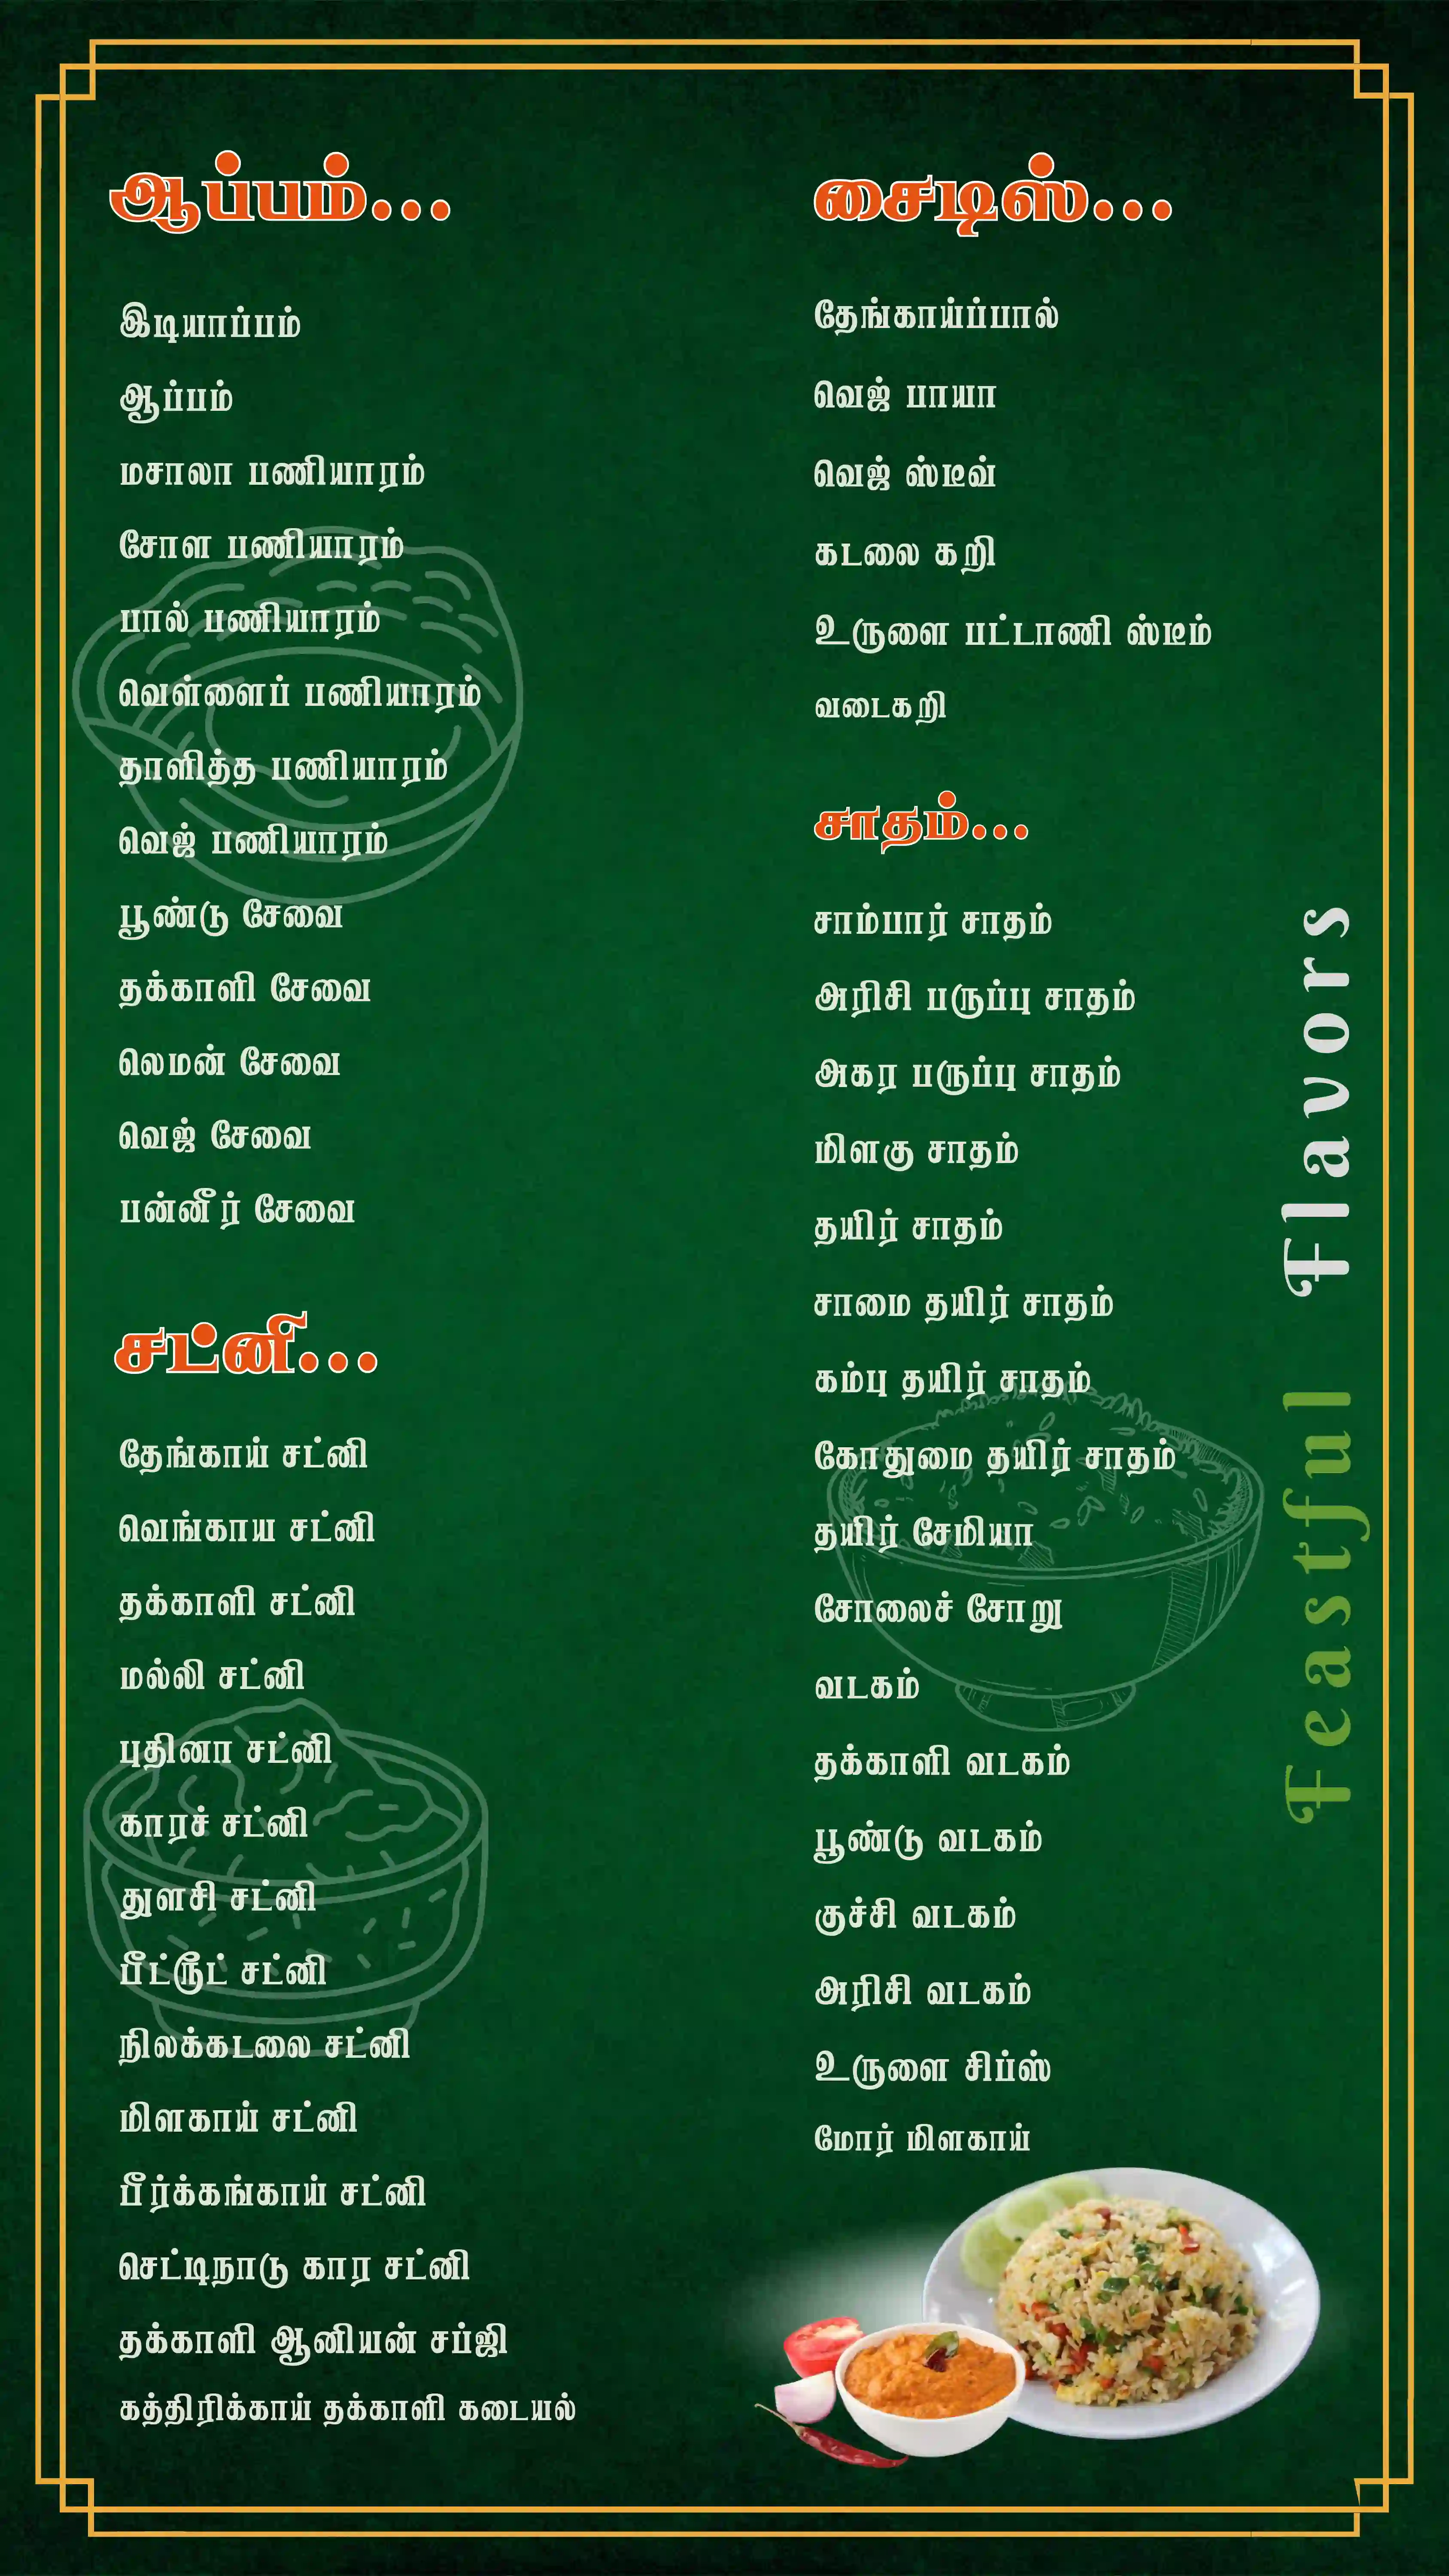 ஆப்பம்...
இடியாப்பம்
ஆப்பம்
மசாலா பணியாரம்
சோள பணியாரம்
பால் பணியாரம்
வெள்ளைப் பணியாரம்
தாளித்த பணியாரம்
வெஜ் பணியாரம்
பூண்டு சேவை
தக்காளி சேவை
லெமன் சேவை
வெஜ் சேவை
பன்னீர் சேவை
சட்னி...
தேங்காய் சட்னி
வெங்காய சட்னி
தக்காளி சட்னி
மல்லி சட்னி
புதினா சட்னி
காரச் சட்னி
துளசி சட்னி
பீட்ரூட் சட்னி
நிலக்கடலை சட்னி
மிளகாய் சட்னி
பீர்க்கங்காய் சட்னி
செட்டிநாடு கார சட்னி
தக்காளி ஆனியன் சப்ஜி
கத்திரிக்காய் தக்காளி கடையல்
சைடிஸ்...
தேங்காய்ப்பால்
வெஜ் பாயா
வெஜ் ஸ்டீவ்
கடலை கறி
உருளை பட்டாணி ஸ்டீம்
வடைகறி
சாதம்...
சாம்பார் சாதம்
அரிசி பருப்பு சாதம்
அகர பருப்பு சாதம்
மிளகு சாதம்
தயிர் சாதம்
சாமை தயிர் சாதம்
கம்பு தயிர் சாதம்
கோதுமை தயிர் சாதம்
தயிர் சேமியா
சோலைச் சோறு
வடகம்
தக்காளி வடகம்
பூண்டு வடகம்
குச்சி வடகம்
அரிசி வடகம்
உருளை சிப்ஸ்
மோர் மிளகாய்
Feastful Flavors